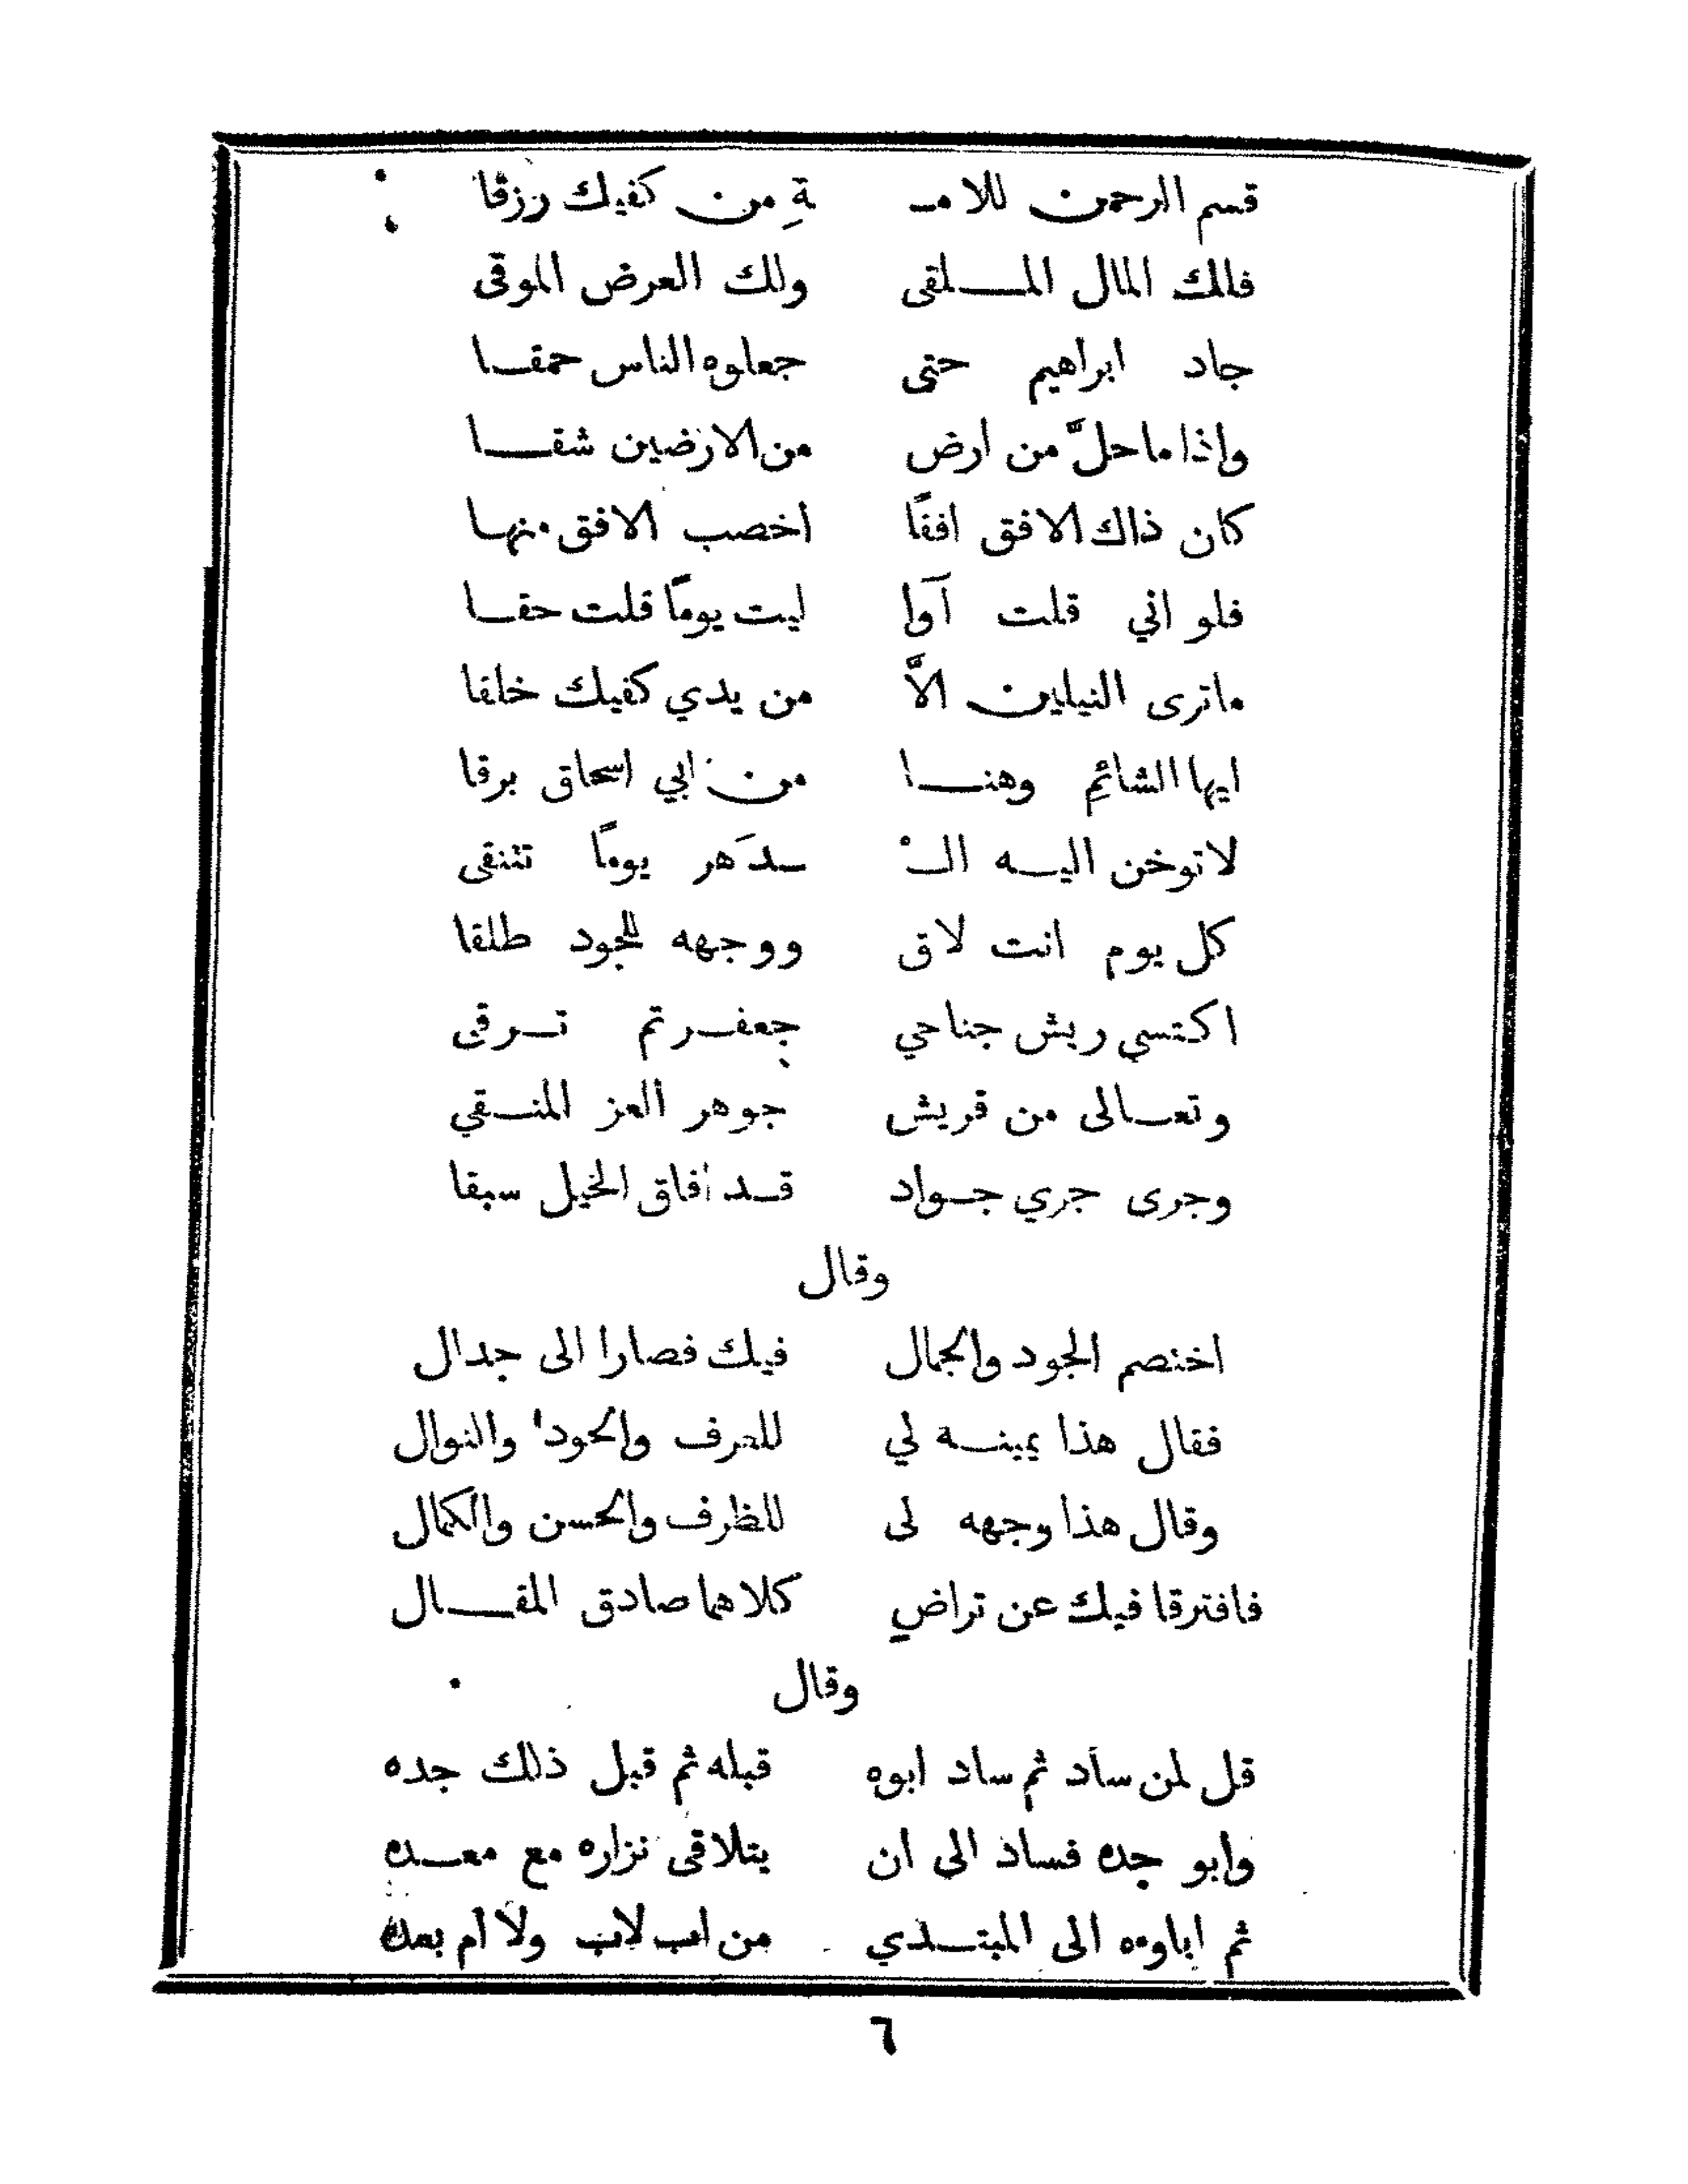 قسم الرحمن للامـ ـةِ من كفيك رزقا
فالك المال الملقى ولك العرض الموقى
جاد ابراهيم حتى جعلوه الناس حمقا
واذا ما حلَّ من ارض من الارضين شقا
كان ذاك الافق افقًا اخصب الافق منها
فلو اني قلت آوا ليت يومًا قلت حقا
ما ترى النيلين الاَّ من يدي كفيك خلقا
ايها الشائمِ وهنا من ابي اسحاق برقا
لا توخن اليه الـْ ـدَهر يومًا تتنقى
كل يوم انت لاق ووجهه للجود طلقا
اكتسي ريش جناحي جعفر تم ترقى
وتعالى من قريش جوهر العز المنقي
وجرى جري جواد قد افاق الخيل سبقا
وقال
اختصم الجود والجمال فيك فصارا الى جدال
فقال هذا يمينه لي للعرف والجود والنوال
وقال هذا وجهه لى للظرف والحسن والكمال
فافترقا فيك عن تراضٍ كلاهما صادق المقال
وقال
قل لمن ساد ثم ساد ابوه قبله ثم قبل ذلك جده
وابو جده فساد الى ان يتلاقى نزاره مع معده
ثم اباوه الى المبتدي من اب لاب ولا ام بعده
٦